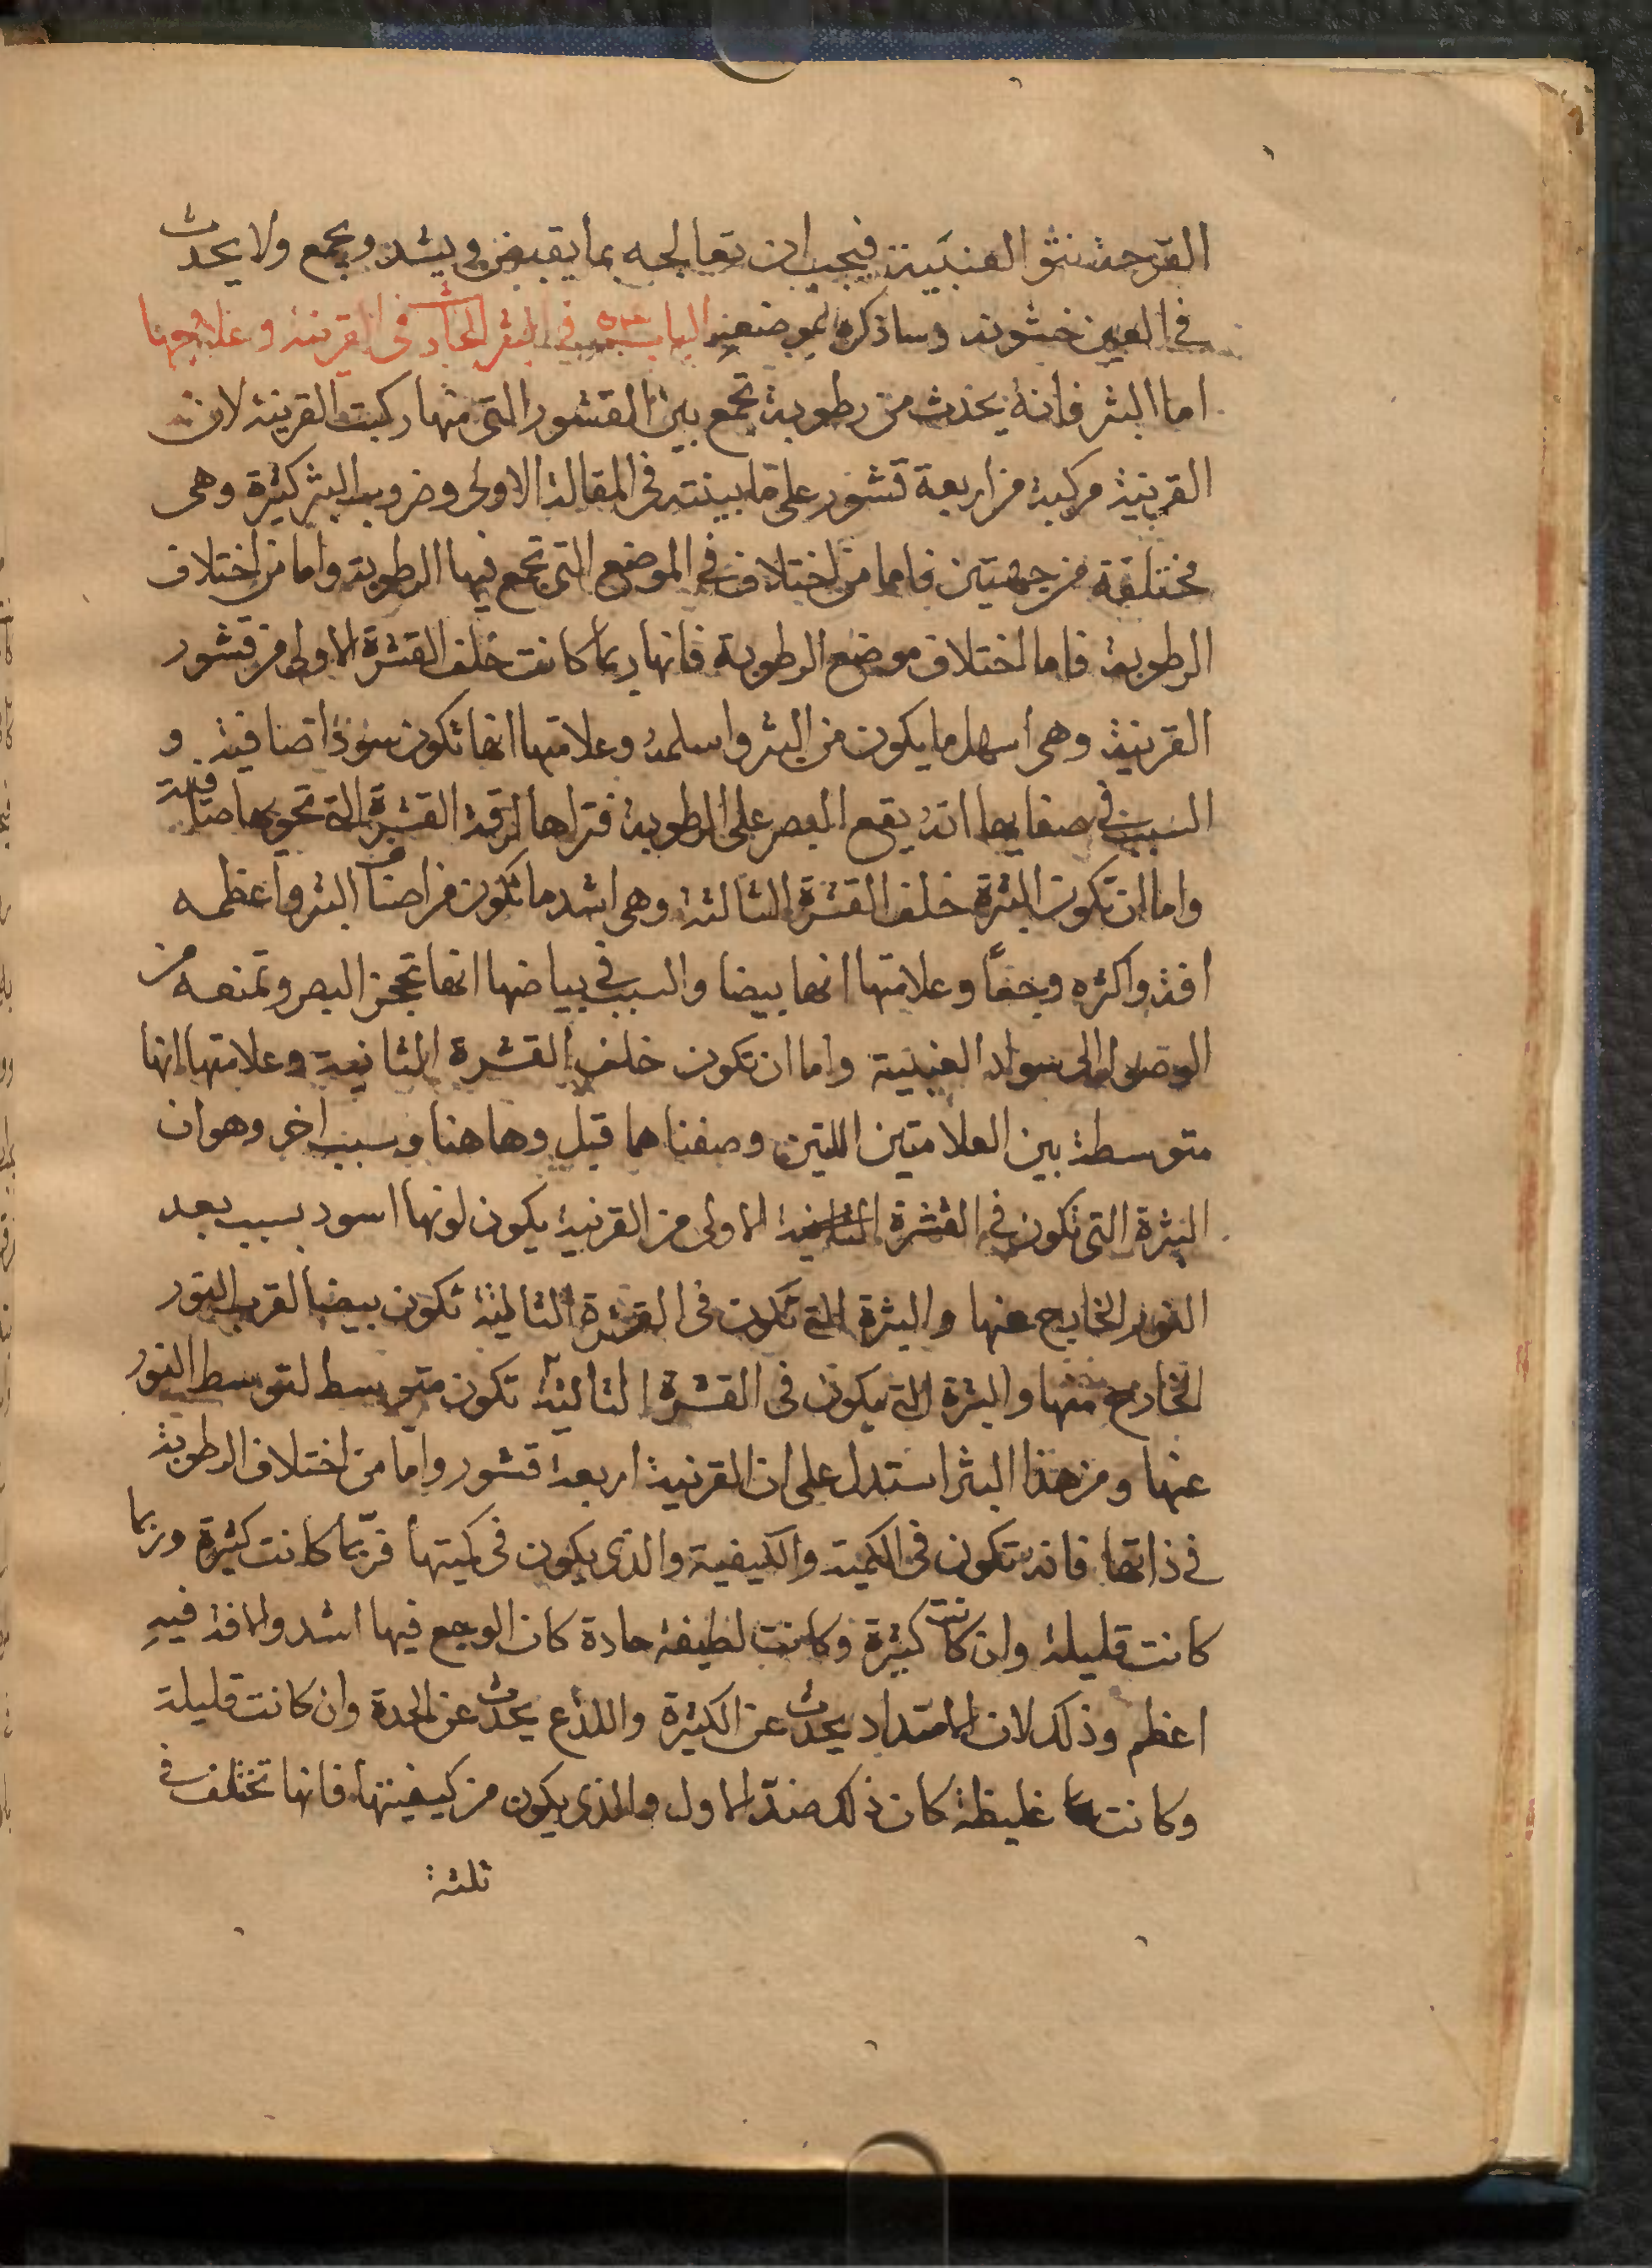 القرحة نتؤ العنبية فيجب ان تعالجه بما يقبض ويشد ويجمع ولا يحدث
في العين خشونة وساذكره بموضعه الباب في البثر الحادث في القرنية وعلاجها
اما البثر فانه يحدث من رطوبة تجمع بين القشور التي منها ركبت القرنية لان
القرنية مركبة من اربعة قشور على ما بينته في المقالة الاولى وضروب البثر كثيرة وهى
مختلفة من جهتين فاما من اختلاف في الموضع التي تجمع فيها الرطوبة واما من اختلاف
الرطوبة فاما اختلاف موضع الرطوبة فانها ربما كانت خلف القشرة الاولى من قشور
القرنية وهى اسهل ما يكون من البثر واسلمه وعلامتها انها تكون سودا صافية و
السبب في صفايها انه يقع البصر على الرطوبة فتراها لرقة القشرة التي تحويها صافية
واما ان تكون البثرة خلف القشرة الثالثة وهى اشد ما تكون من اصناف البثر واعظمه
افة واكثره وجعا وعلامتها انها بيضا والسبب في بياضها انها تحجز البصر وتمنعه من
الوصول الى سواد العنبية واما ان تكون خلف القشرة الثانية وعلامتها انها
متوسطة بين العلامتين اللتين وصفناهما قبل وهاهنا وسبب اخر وهو ان
البثرة التي تكون في القشرة الاولى من القرنية يكون لونها اسود بسبب بعد
النور الخارج عنها والبثرة التي تكون في القشرة الثالثة تكون بيضا لقرب النور
الخارج منها والبثرة التي يكون في القشرة الثالثة تكون متوسط لتوسط النور
عنها ومن هذا البثر استدل على ان القرنية اربعة قشور واما من اختلاف الرطوبة
في ذاتها فانه تكون في الكمية والكيفية والذي يكون في كميتها فربما كانت كثيرة وربما
كانت قليلة وان كانت كثيرة وكانت لطيفة حادة كان الوجع فيها اشد والافة فيه
اعظم وذلك لان الامتداد يحدث عن الكثرة واللذع يحدث عن الحدة وان كانت قليلة
وكانت غليظة كان ذلك ضد الاول والذي يكون من كيفيتها فانها تختلف في
ثلثة